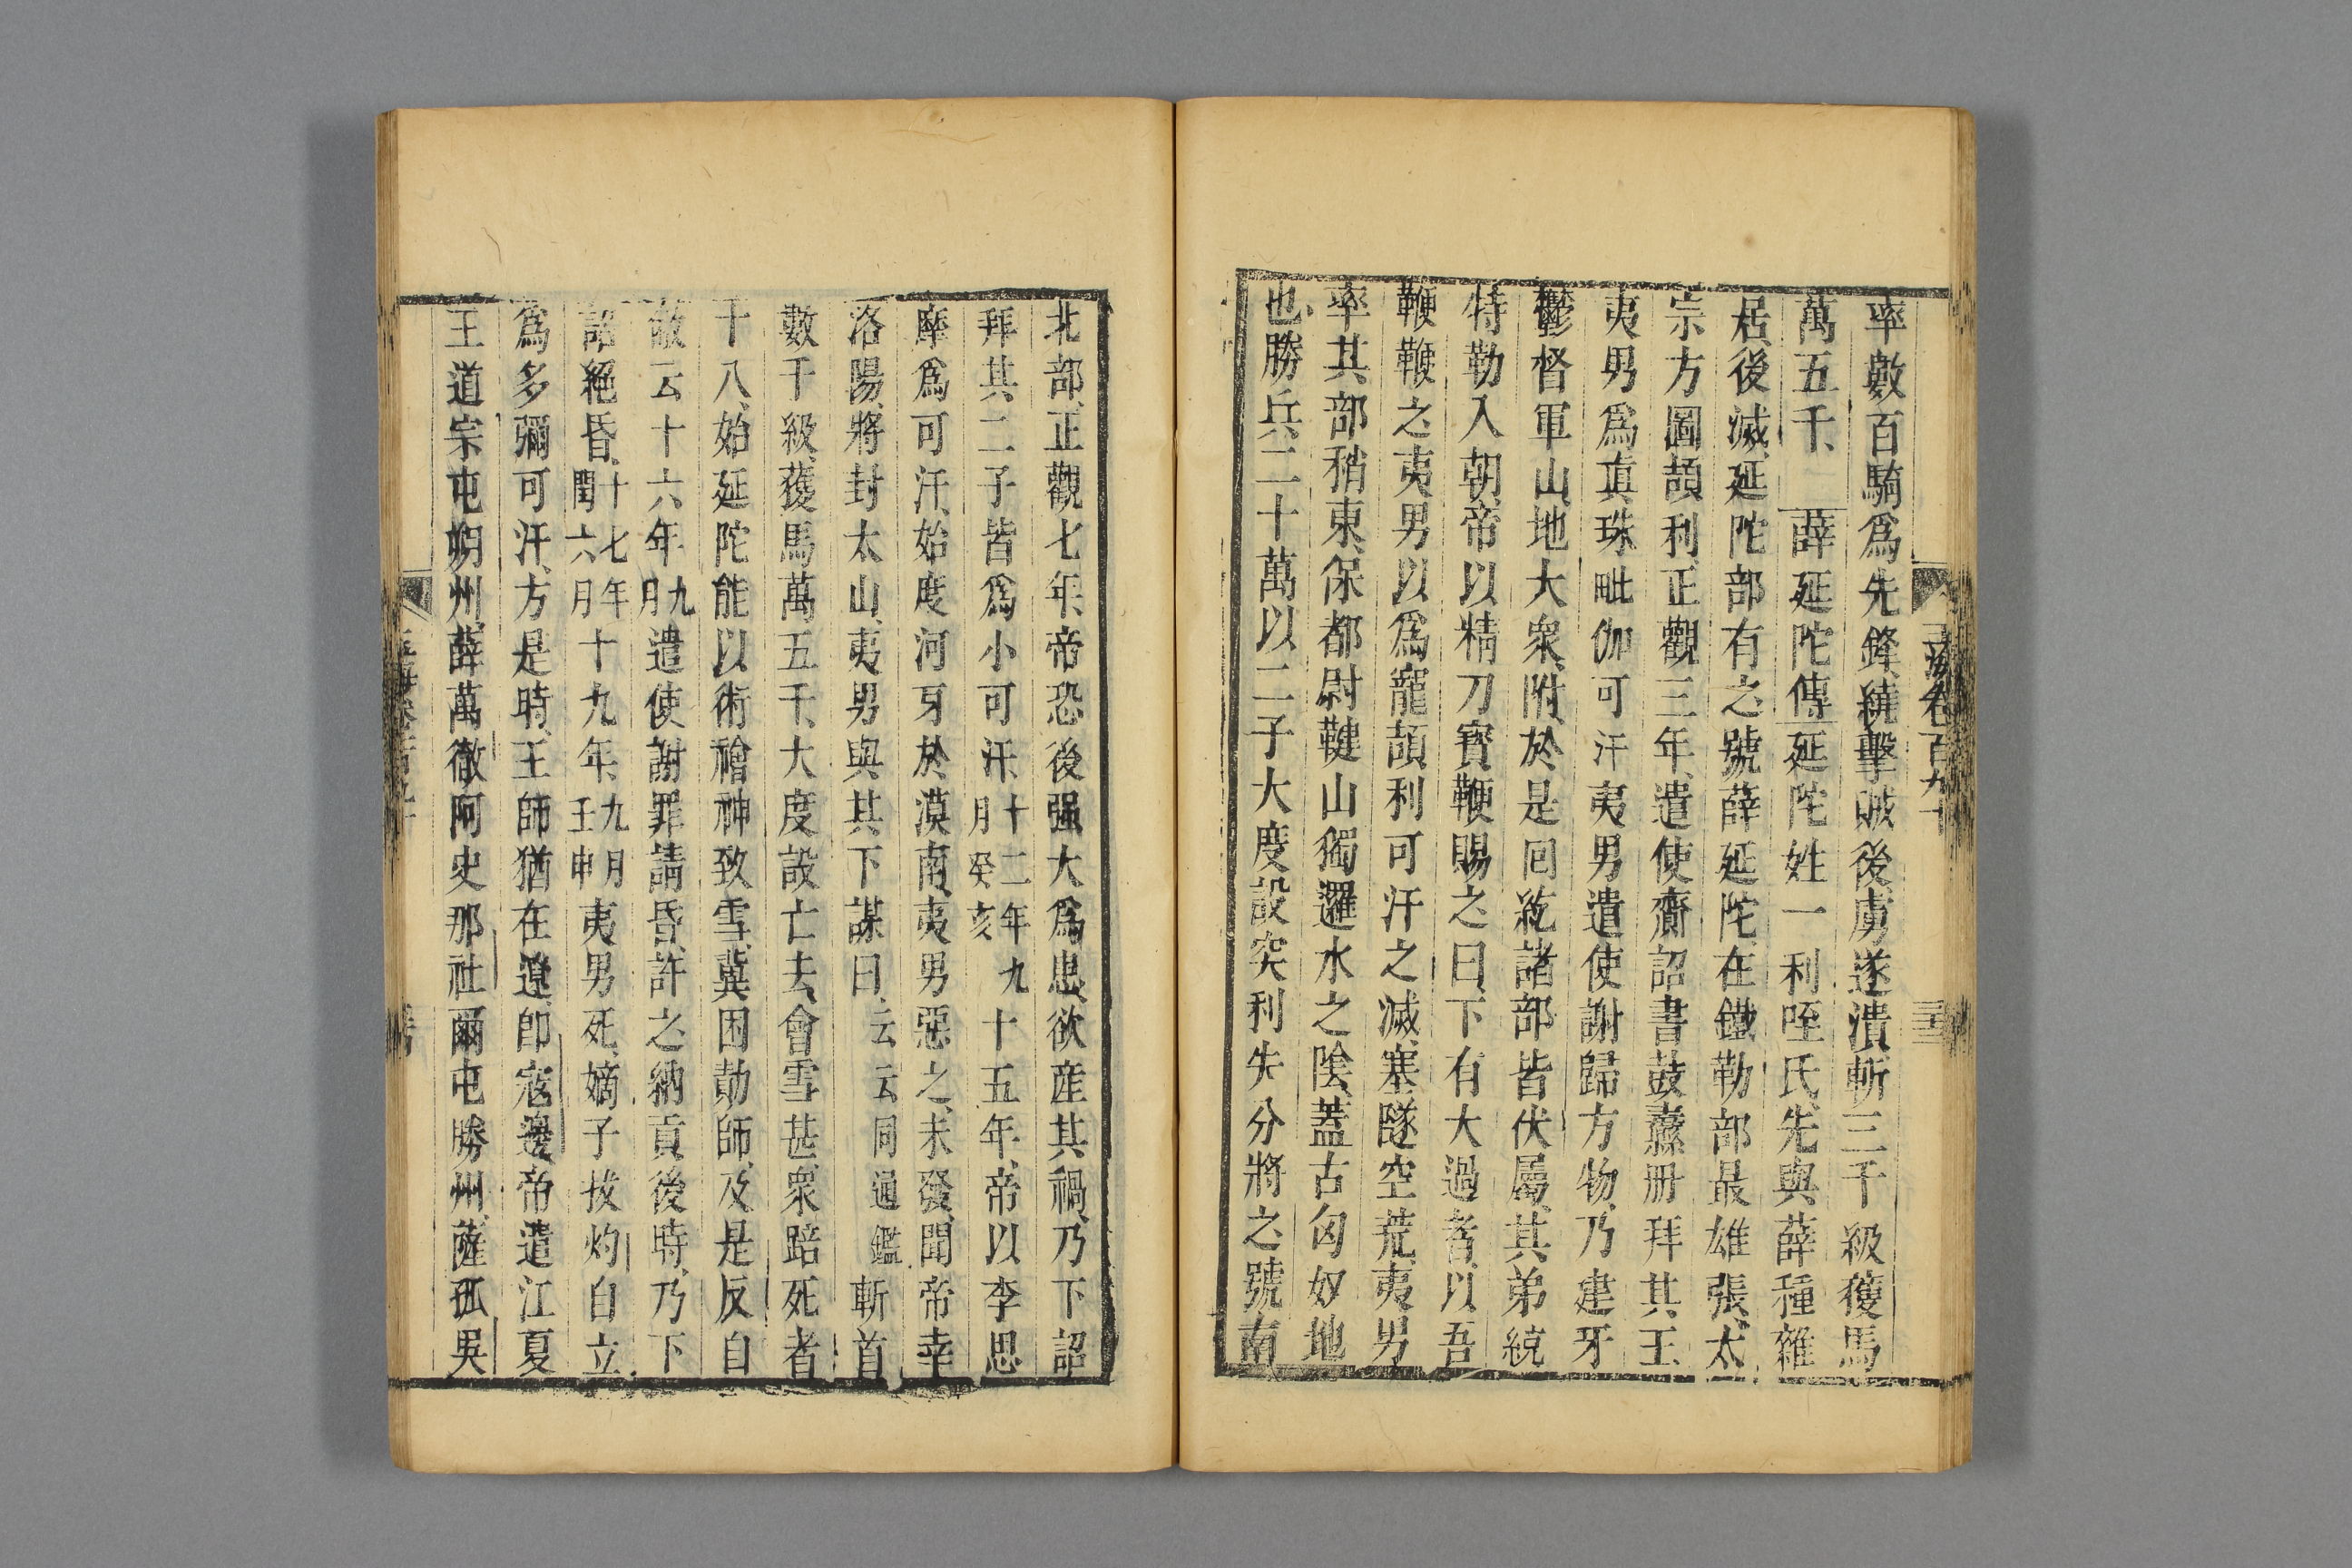 玉海卷百九十
率數百騎爲先鋒繞擊賊後虜遂潰斬三千級獲馬
萬五千 薛延陀傳延陀姓一利咥氏先與薛種雜
居後滅延陀部有之號薛延陀在鐵勒部最雄張太
宗方圖頡利正觀三年遣使齎詔書鼓纛册拜其王
夷男爲真珠毗伽可汗夷男遣使謝歸方物乃建牙
鬱督軍山地大衆附於是回紇諸部皆伏屬其弟統
特勒入朝帝以精刀寶鞭賜之曰下有大過者以吾
鞭鞭之夷男以爲寵頡利可汗之滅塞隧空荒夷男
率其部稍東保都尉鞬山獨邏水之陰蓋古匈奴地
也勝兵二十萬以二子大度設突利失分將之號南
北部正觀七年帝恐後强大爲患欲産其禍乃下詔
拜其二子皆爲小可汗十二年九月癸亥十五年帝以李思
摩爲可汗始度河牙於漠南夷男惡之未發聞帝幸
洛陽將封太山夷男與其下謀曰云云同通鑑斬首
數千級獲馬萬五千大度設亡去會雪甚衆踣死者
十八始延陀能以術禬神致雪冀困勣師及是反自
敝云十六年九月遣使謝罪請昏許之納貢後時乃下
詔絕昏十七年閏六月十九年九月壬申夷男死嫡子拔灼自立
爲多彌可汗方是時王師猶在遼卽寇邊帝遣江夏
王道宗屯朔州薛萬徹阿史那社爾屯勝州薩孤吳